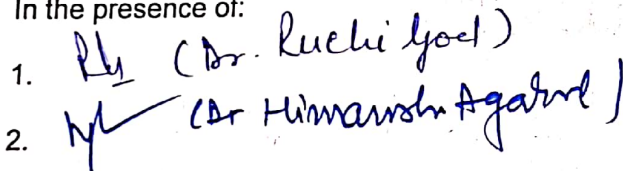 In the presence of:
1. (Dr. Ruchi Goel)
2. (Dr Himanshu Agarwal)